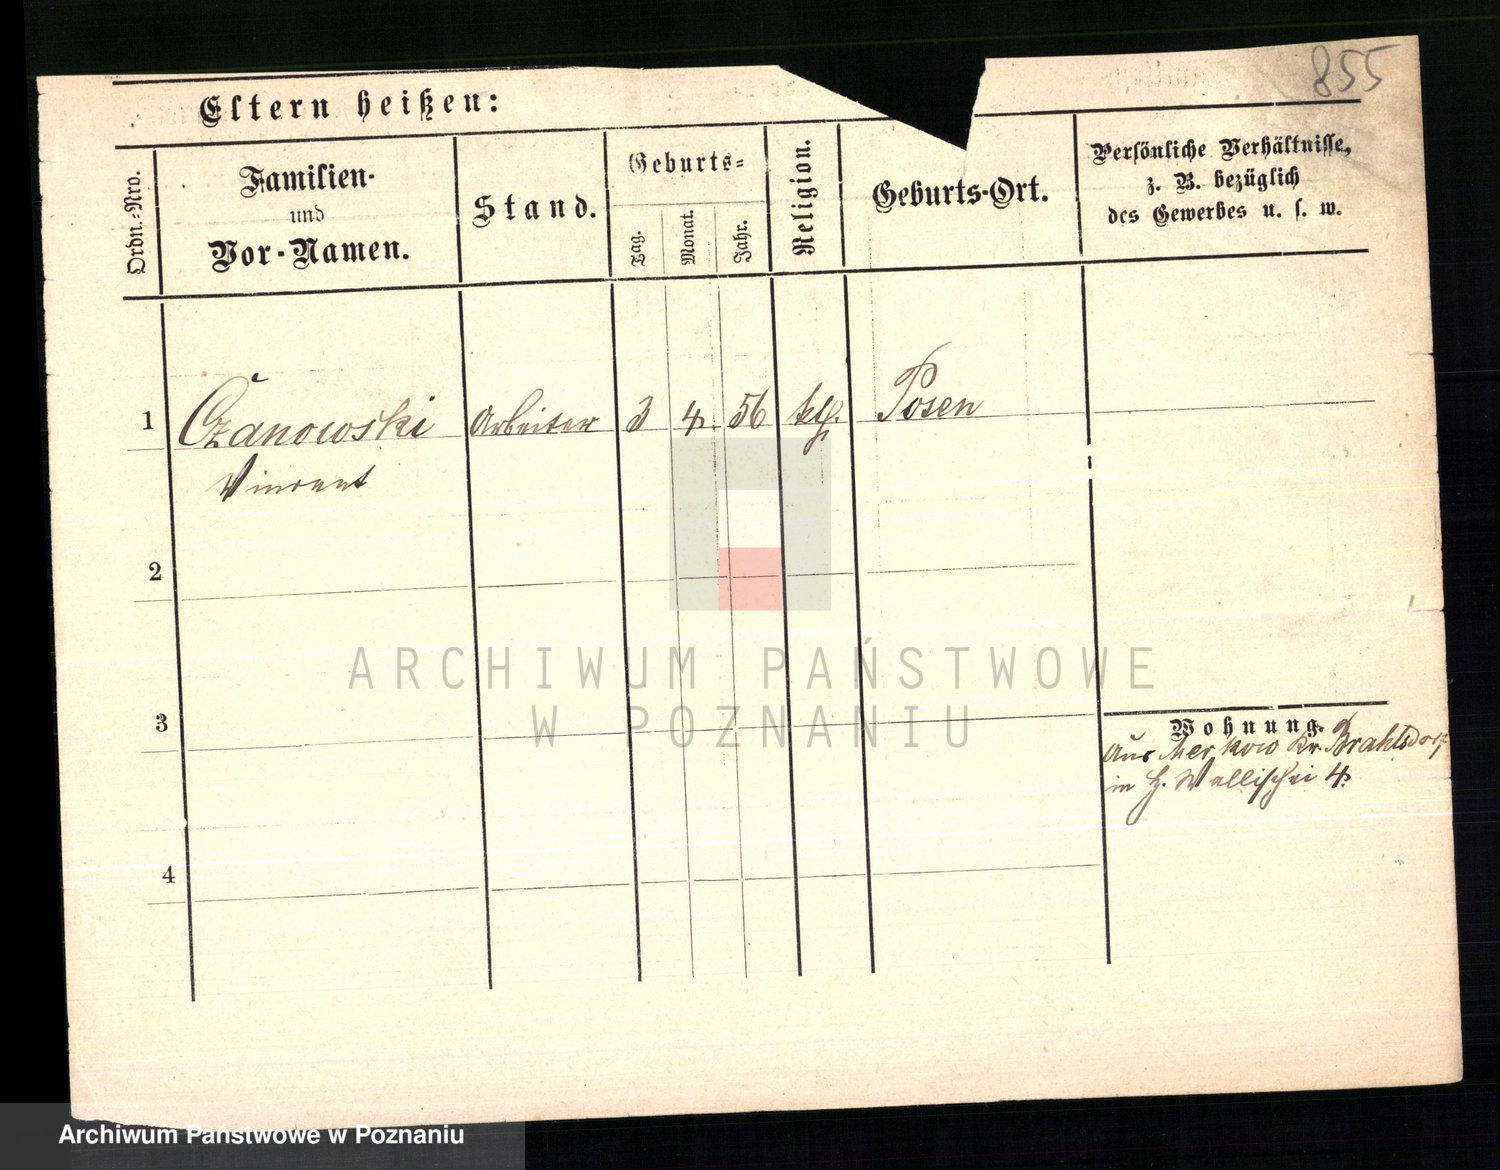 855
Eltern heißen:
Ordn.-Nro.
Familien-
und
Vor-Namen.
Stand.
Geburts-
Tag.
Monat.
Jahr.
Religion.
Geburts-Ort.
Persönliche Verhältnisse,
z. B. bezüglich
des Gewerbes u. s. w.
1 Czanowski Arbeiter 3 4 56 kth. Posen
Vincent
2
3
Wohnung.
Aus Kr.
in H. Wallischei 4
4
ARCHIWUM PAŃSTWOWE
W POZNANIU
Archiwum Państwowe w Poznaniu